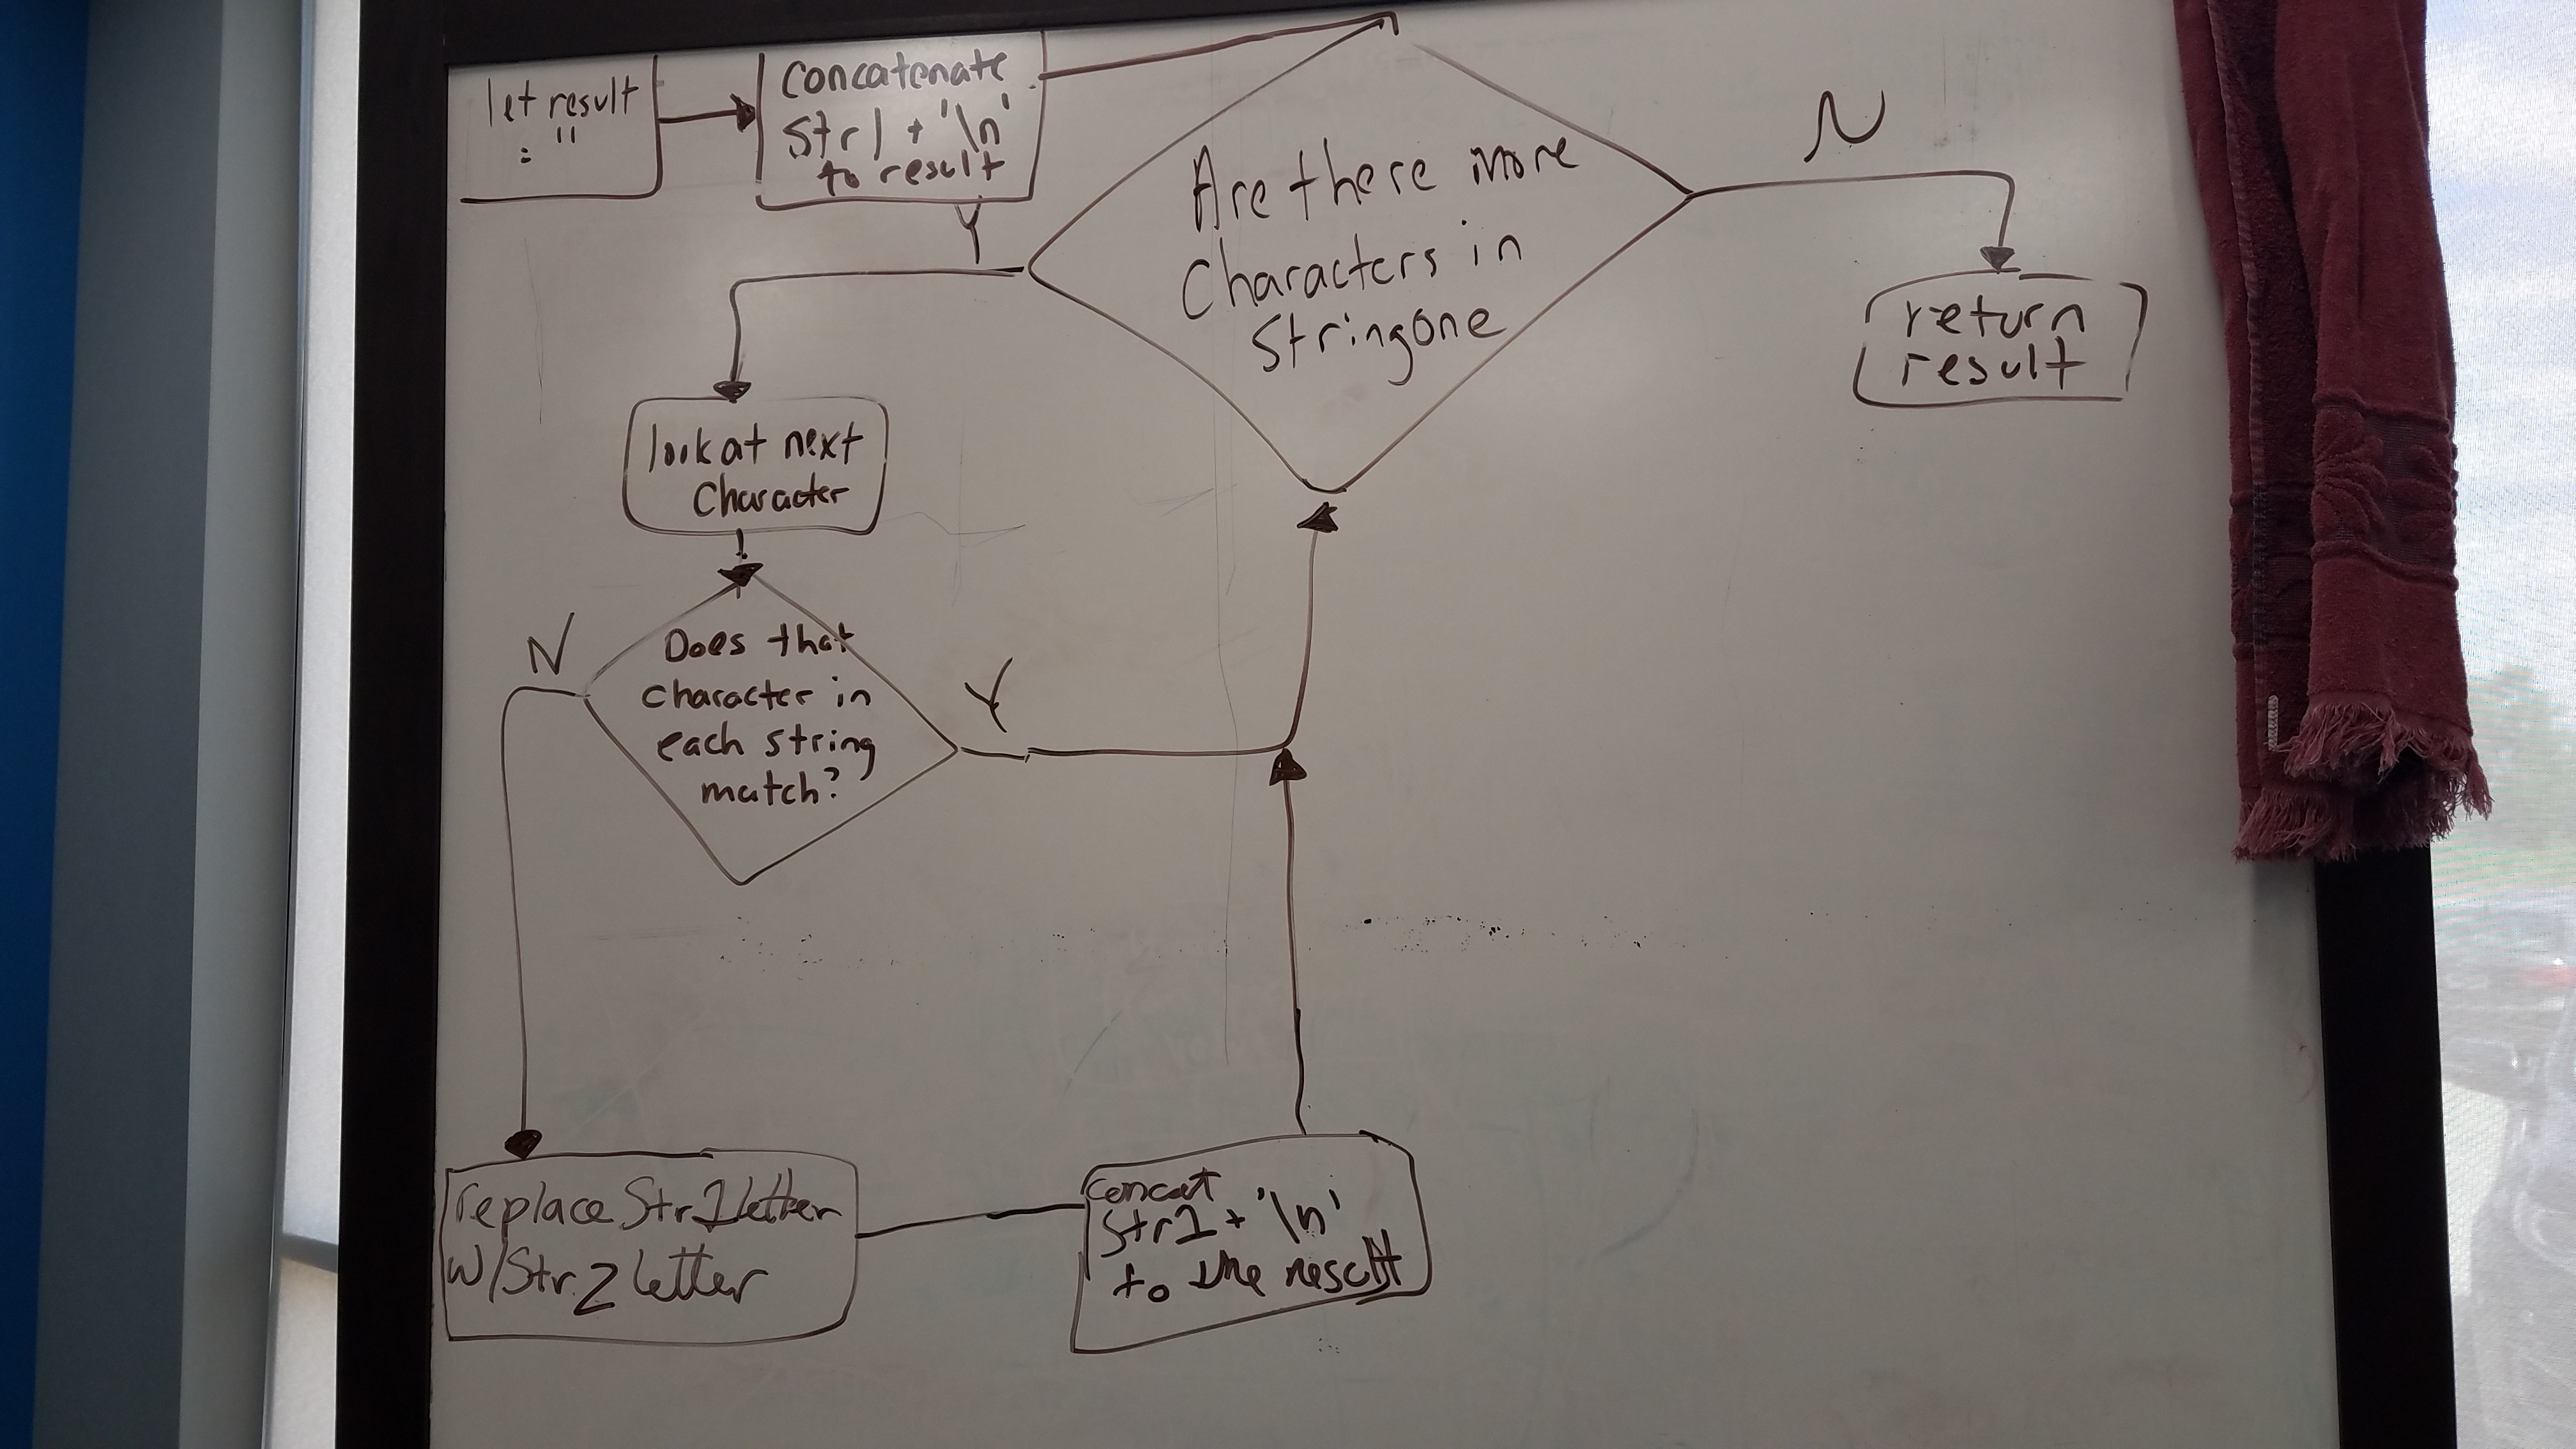 let result
= ''
Concatenate
Str1 + '\n'
to result
Are there more
Characters in
StringOne
N
Y
return
result
look at next
Character
Does that
character in
each string
match?
N
Y
replace Str1 letter
w/Str2 letter
concat
Str1 + '\n'
to the result